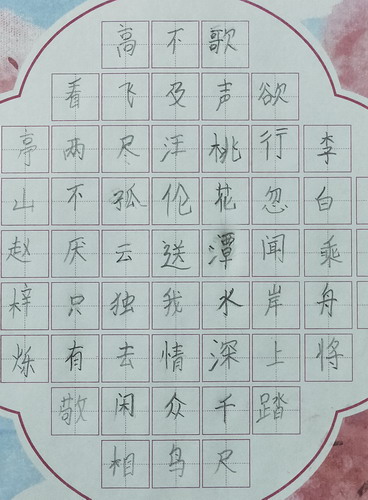 李白乘舟将
欲行忽闻岸上踏
歌声桃花潭水深千尺
不及汪伦送我情众鸟
高飞尽孤云独去闲相
看两不厌只有敬
亭山赵梓烁